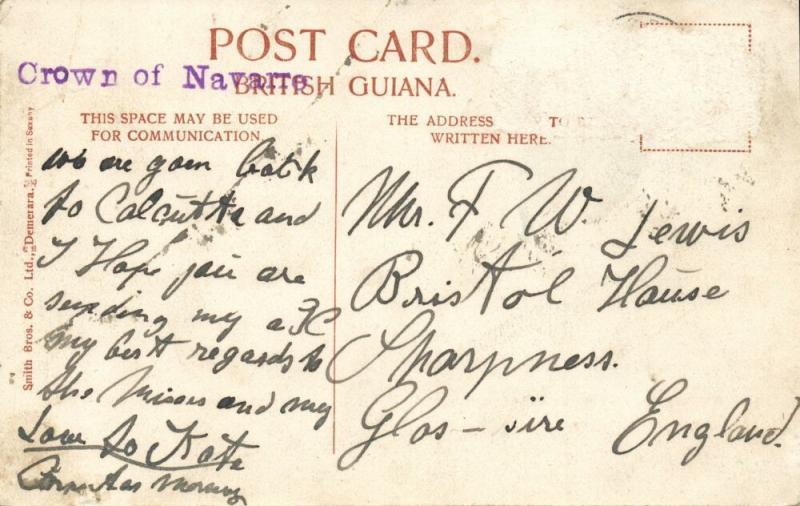 POST CARD.
Crown of Navarre
BRITISH GUIANA.
THIS SPACE MAY BE USED
FOR COMMUNICATION.
THE ADDRESS TO
WRITTEN HERE.
we are goen back
to Calcutta and
I Hope you are
sending my a PC
my best regards to
the Misses and my
Love to Kate
Mr. F W. Lewis
Bristol House
Sharpness.
Glos-sire England.
Smith Bros. & Co. Ltd., Demerara. Printed in Saxony